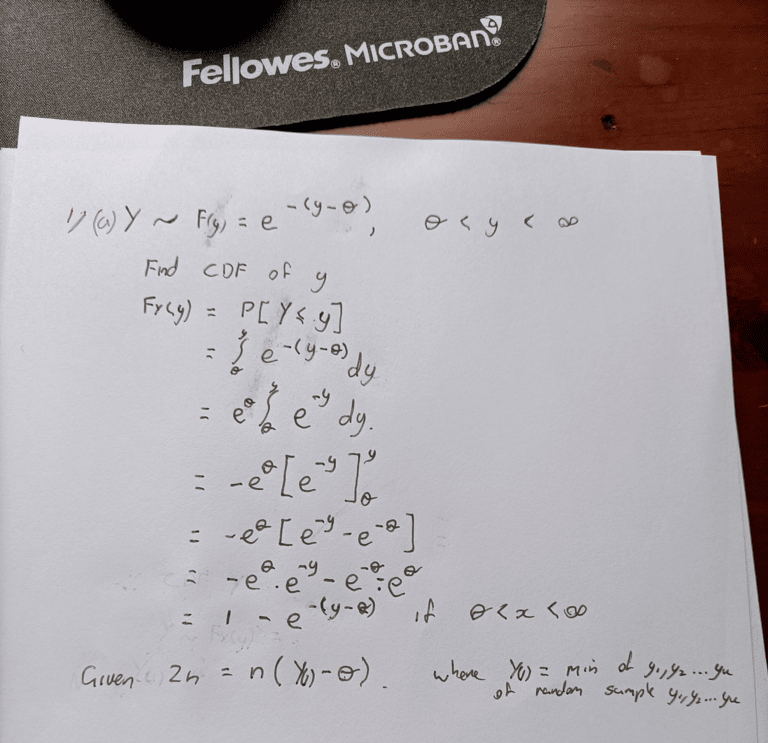 Fellowes® MICROBAN®
1) (a) Y ~ F(y) = e^{-(y-θ)}, θ < y < ∞
Find CDF of y
F_Y(y) = P[Y ≤ y]
= ∫_θ^y e^{-(y-θ)} dy
= e^θ ∫_θ^y e^{-y} dy.
= -e^θ [e^{-y}]_θ^y
= -e^θ [e^{-y} - e^{-θ}]
= -e^θ . e^{-y} - e^{-θ} ÷ e^θ
= 1 - e^{-(y-θ)} if θ < x < ∞
Given Zn = n(Y(1) - θ). where Y(1) = min of y1, y2 ... yn
of random sample y1, y2 ... yn